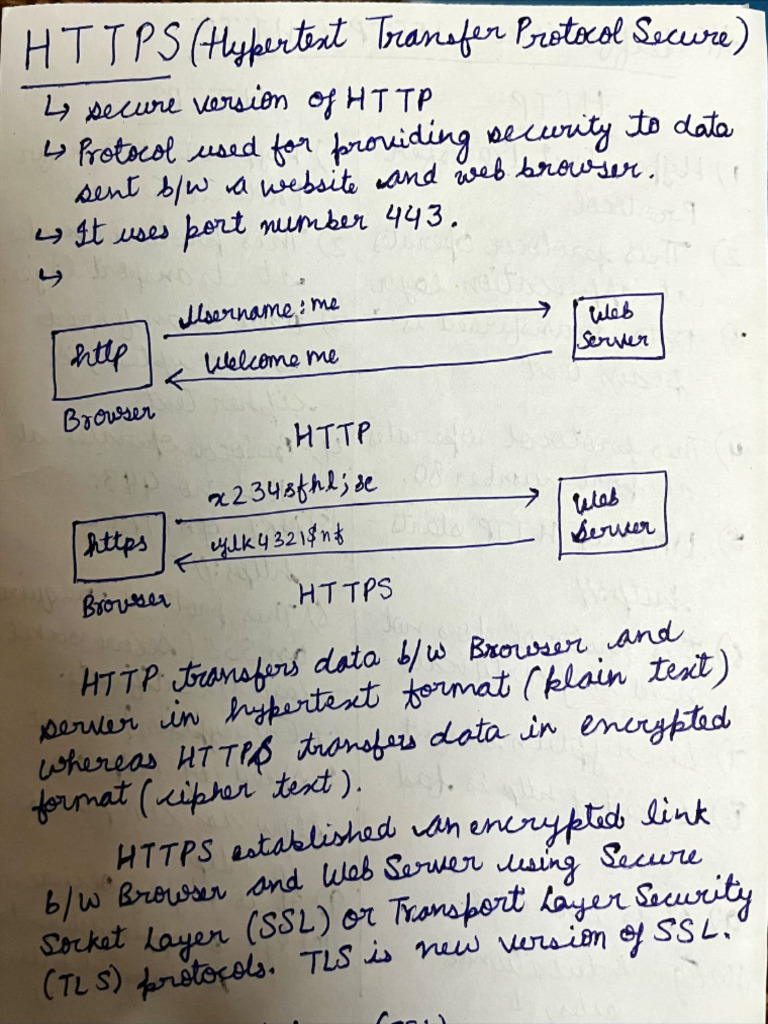 HTTPS (Hypertext Transfer Protocol Secure)
↳ secure version of HTTP
↳ Protocol used for providing security to data
sent b/w a website and web browser.
↳ It uses port number 443.
↳
Username: me
http
Web
Server
Welcome me
Browser
HTTP
x234sfhl;se
https
Web
Server
Browser
HTTPS
HTTP transfers data b/w Browser and
server in hypertext format (plain text)
whereas HTTPS transfers data in encrypted
format (cipher text).
HTTPS established an encrypted link
b/w Browser and Web Server using Secure
Socket Layer (SSL) or Transport Layer Security
(TLS) protocols. TLS is new version of SSL.